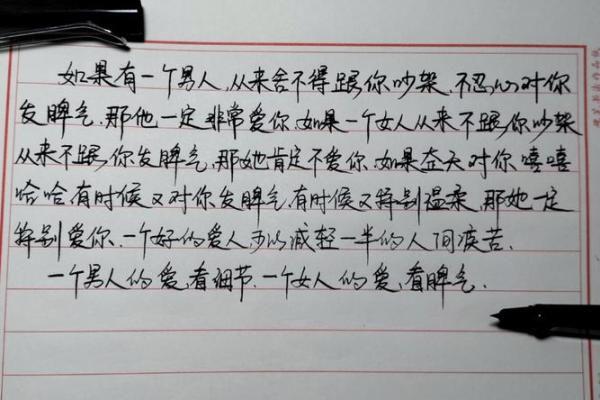 如果有一个男人,从来舍不得跟你吵架,不忍心对你
发脾气,那他一定非常爱你.如果一个女人从来不跟你吵架
从来不跟你发脾气,那她肯定不爱你.如果在天对你嘻嘻
哈哈,有时候又对你发脾气,有时候又特别温柔,那她一定
特别爱你.一个好的爱人可以减轻一半的人间疾苦.
一个男人的爱,看细节.一个女人的爱,看脾气.